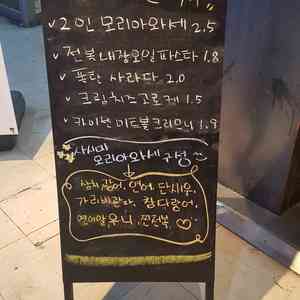 2인 모리아와세 2.5
전복내장오일파스타 1.8
폭탄 사라다 2.0
크림치즈고로케 1.5
카이센 미트볼크리미니 1.9
사시미
모리아와세 구성
삼치, 잿방어, 연어, 단새우,
가리비관자, 참다랑어,
우니, 찐전복